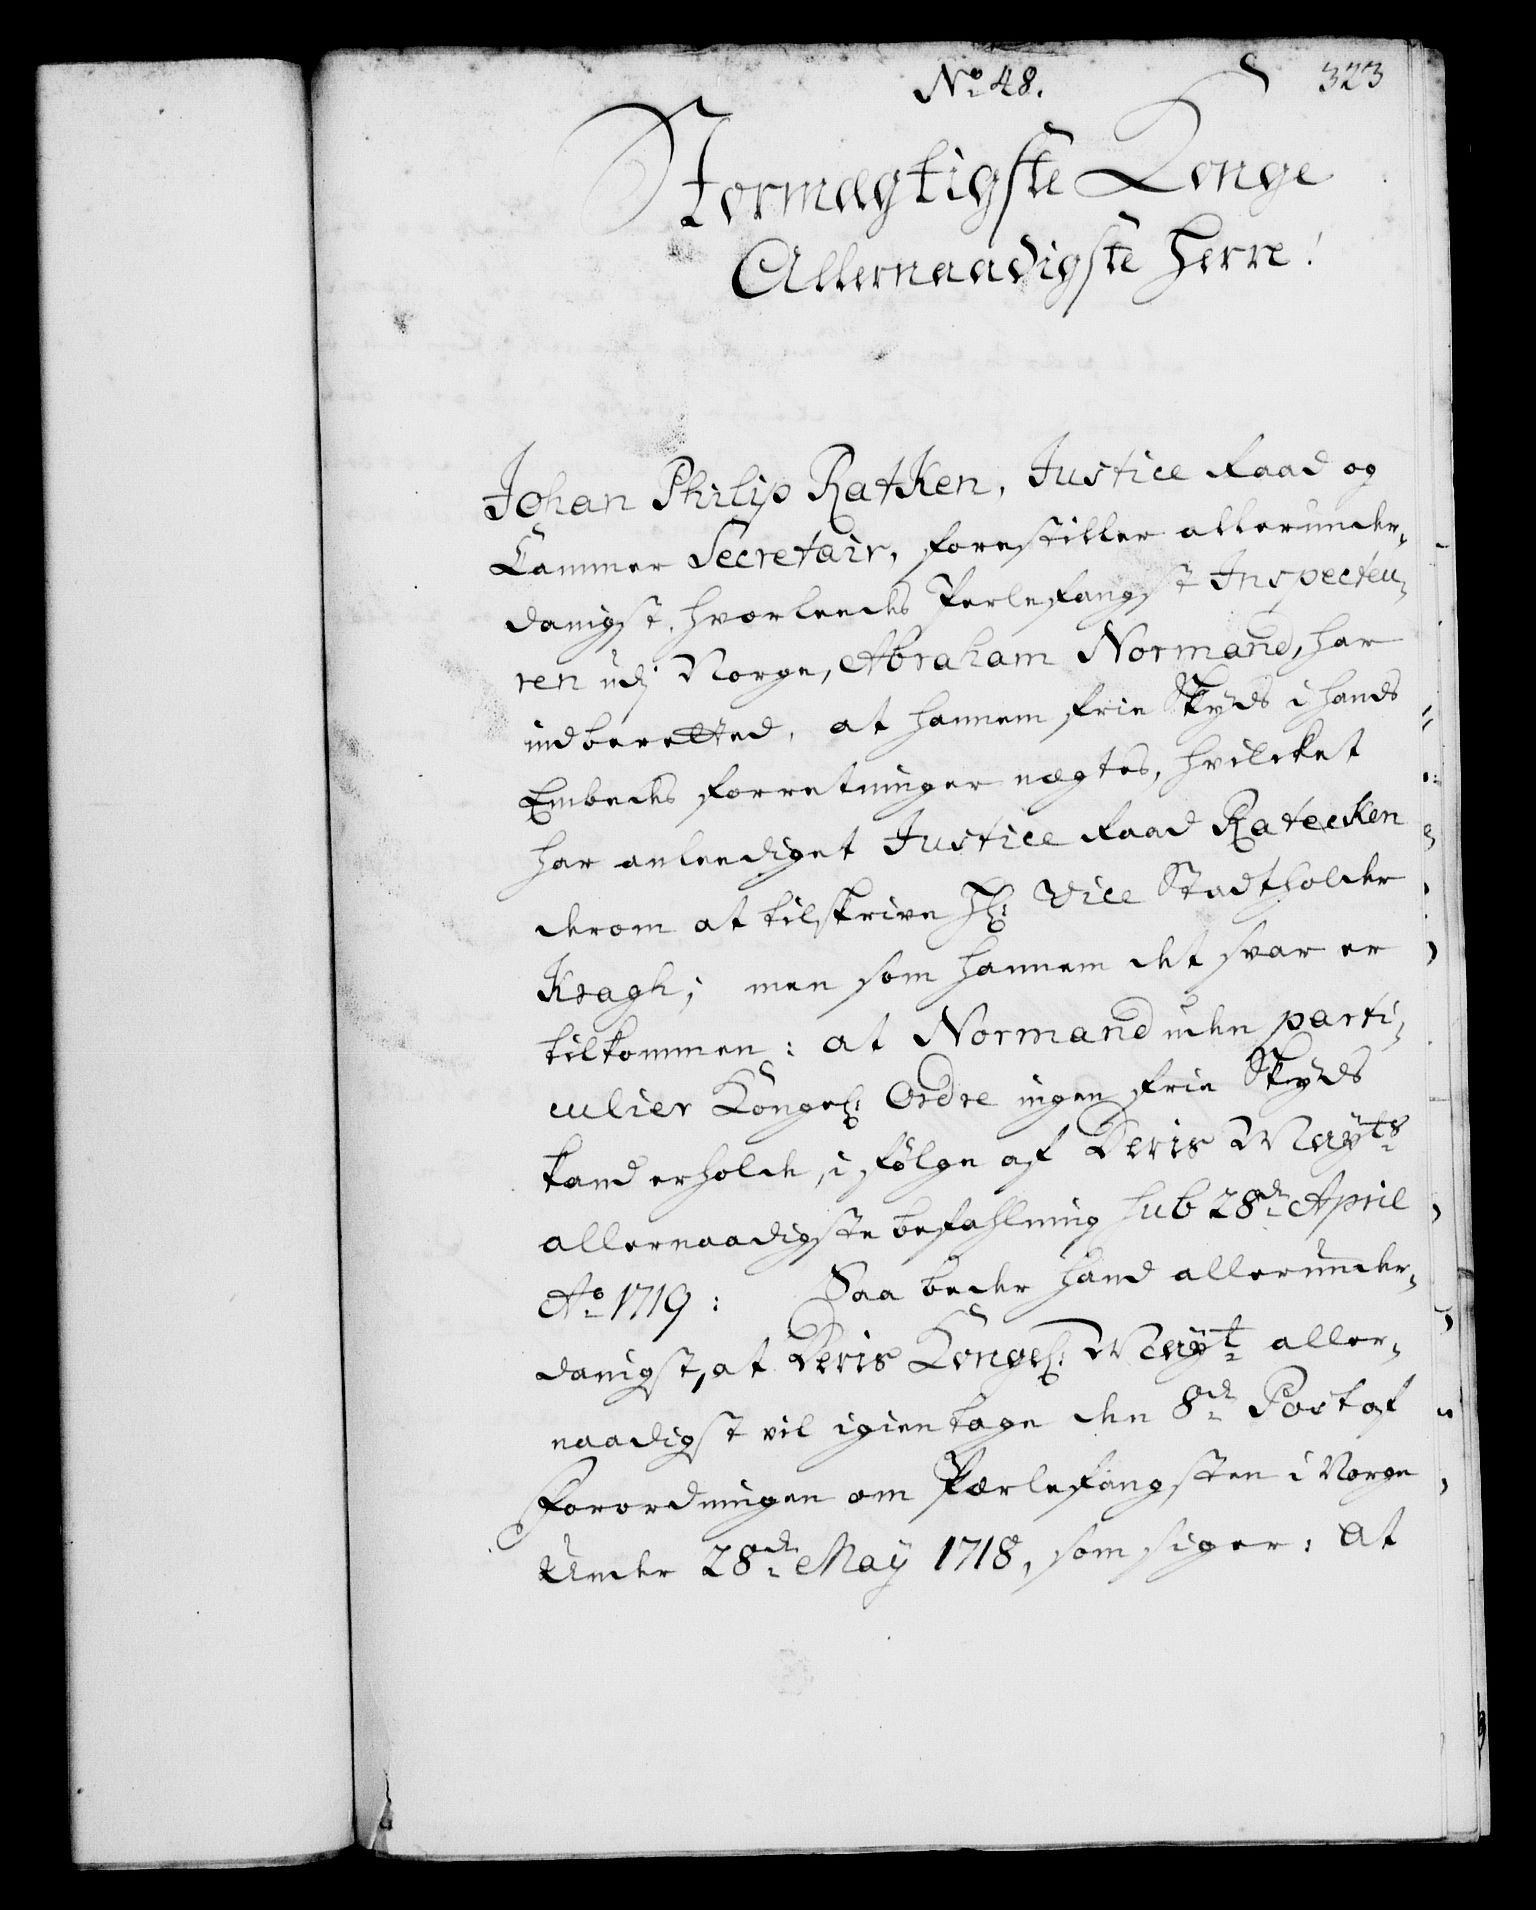 No 48.
323
Stormægtigste Konge
Allernaadigste Herre!
Johan Philip Ratken, Justice Raad og
Cammer Secretair, forestiller allerunder-
danigst, hvorleedes Perlefangst Inspecteu-
ren udj Norge, Abraham Normand, har
indberetted, at hannem frie Skyds i hands
Embeds forretninger negtes, hvilcket
har anleediget Justice Raad Ratecken
derom at tilskrive Hr: Vice Stadtholder
Kragh; men som hannem det svar er
tilkommen: at Normand uden parti-
culier Kongel: Ordre ingen frie Skyds
kand erholde, i følge af Deris Mayts
allernaadigste befahlning sub 28de April
Ao 1719: Saa beder hand allerunder-
danigst, at Deris Kongel: Mayt aller-
naadigst vil igientage den 8de Post af
Forordningen om Perlefangsten i Norge
Under 28de May 1718, som siger: At